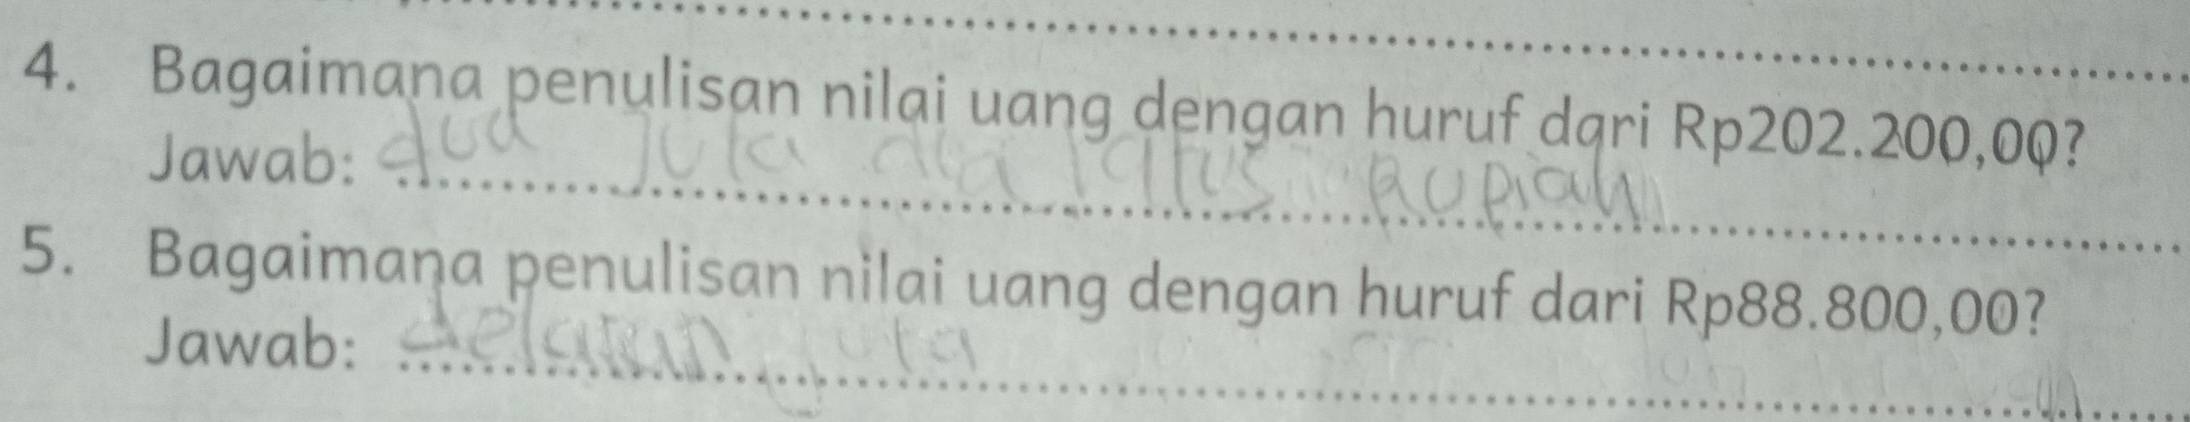 4. Bagaimana penulisan nilai uang dengan huruf dari Rp202.200,00?
Jawab: dua juta dua ratus rupiah
5. Bagaimana penulisan nilai uang dengan huruf dari Rp88.800,00?
Jawab: delapan juta